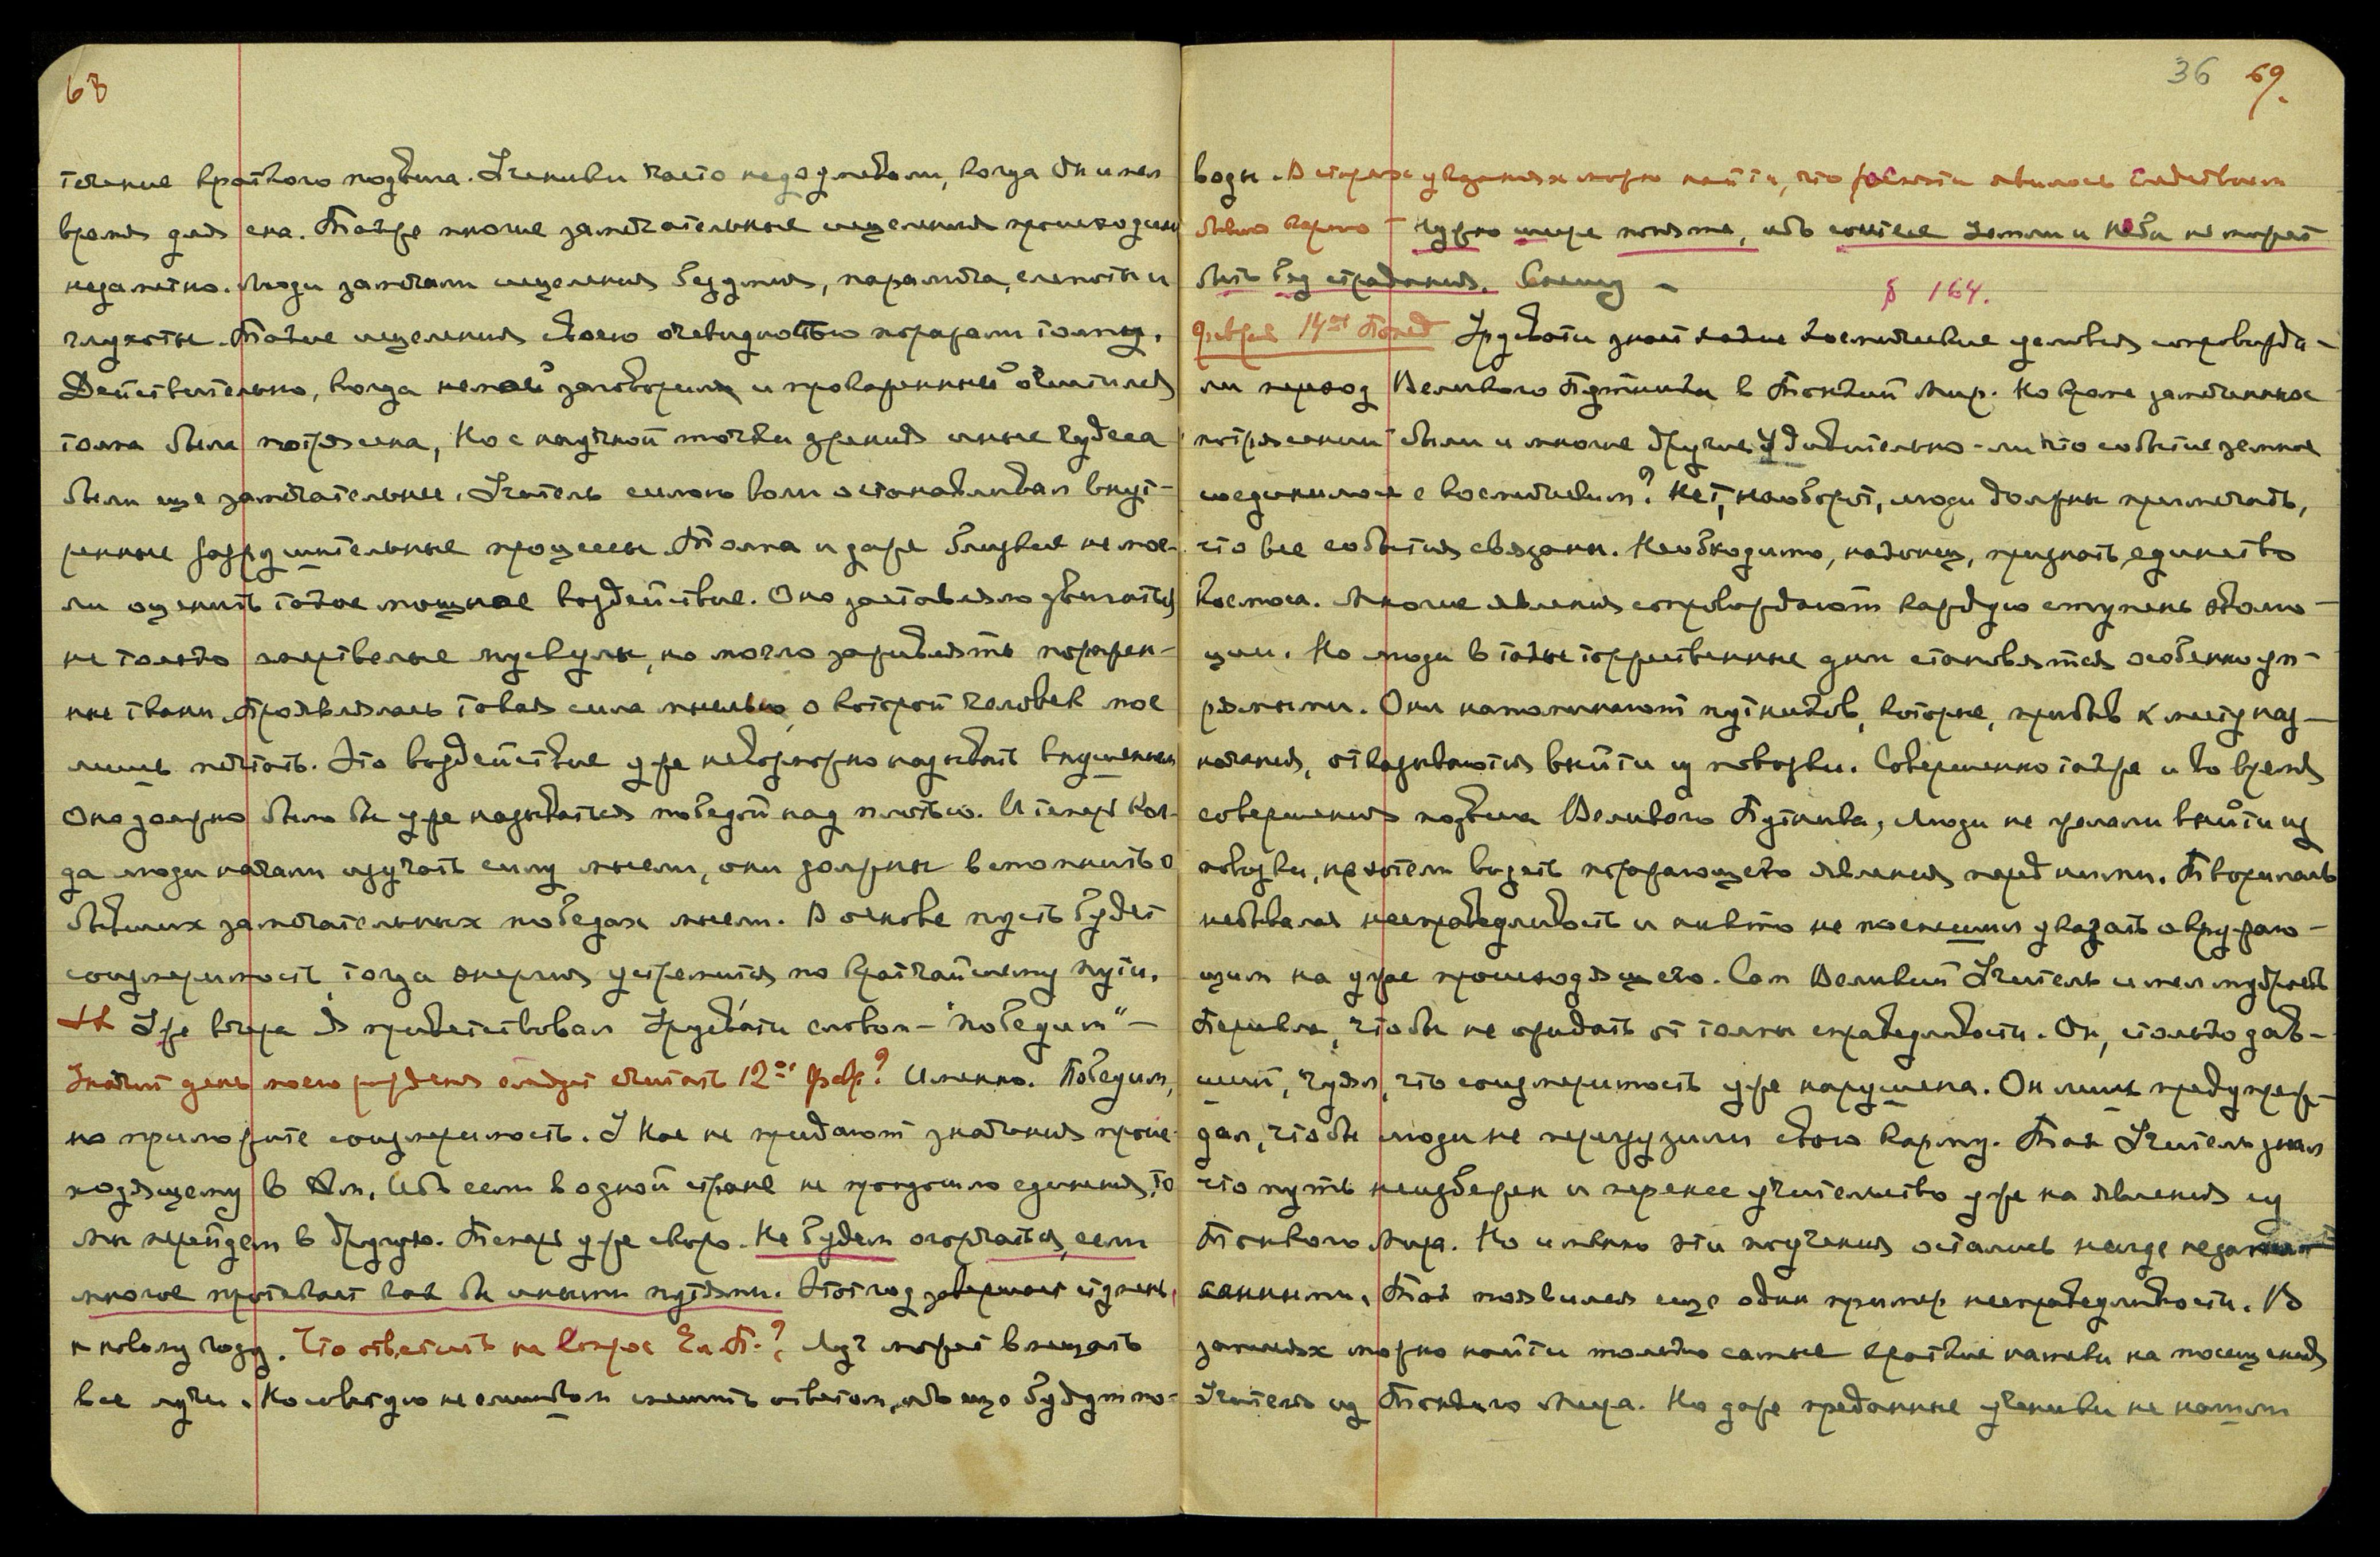 68
течение краткого подвига. Ученики часто недоумевали, когда Он имел
время для сна. Также многие замечательные исцеления происходили
незаметно. Люди замечали исцеления безумия, паралича, слепоты и
глухоты. Такие исцеления своею очевидностью поражали толпу.
Действительно, когда немой заговорил и прокаженный очистился
толпа была потрясена, Но с научной точки зрения иные чудеса
были еще замечательнее. Учитель силою воли останавливал внут-
ренние разрушительные процессы. Толпа и даже близкие не мог-
ли оценить такое мощное воздействие. Оно заставляло двигаться
не только омертвелые мускулы, но могло заживлять поражен-
ные ткани. Проявлялась такая сила мысли, о которой человек мог
лишь мечтать. Это воздействие уже невозможно называть внушением
Оно должно было бы уже называться победой над плотью. И теперь ког-
да люди начали изучать силу мысли, они должны вспомнить о
бывших замечательных победах мысли. В основе пусть будет
соизмеримость, тогда энергия устремится по кратчайшему пути.
Уже вчера Я приветствовал Урусвати словом - "победим" -
Значит день моего рождения следует считать 12ое февр? Именно. Победим,
но приложите соизмеримость. У Нас не придают значения проис-
ходящему в Ам. Ибо если в одной стране не произошло единения, то
мы перейдем в другую. Теперь уже скоро. Не будем огорчаться, если
многое протекает как бы иными путями. Этот год завершает ступень,
к новому году. Что ответить на вопрос Ек.? Луч может вмещать
все лучи. Но советую не слишком спешить ответом, ибо еще будут по-
36 69.
воды. В старых указаниях можно найти, что явилось следствием
было карма - Нужно шире понять, ибо соитие Земли и Неба не может
быть без страдания. Кончу -
§ 164.
Февраля 14ое Понед Урусвати знает какие космические условия сопровожда-
ли переход Великого Путника в Тонкий Мир. Но кроме замеченных
потрясений были и многие другие. Удивительно-ли что событие земное
соединилось с космическим? Нет, наоборот, люди должны примечать,
что все события связаны. Необходимо, наконец, признать единство
Космоса. Многие явления сопровождают каждую ступень эволю-
ции. Но люди в такие торжественные дни становятся особенно уп-
рямыми. Они напоминают путников, которые, прибыв к месту наз-
начения, отказываются выйти из повозки. Совершенно также и во время
совершения подвига Великого Путника, люди не желали выйти из
повозки, не хотели видеть поражающего явления перед ними. Творилась
небывалая несправедливость и никто не поспешил указать окружаю-
щим на ужас происходящего. Сам Великий Учитель имел мудрость
Терпеть, чтобы не ожидать от толпы справедливости. Он, столько дав-
ший, чуял, что соизмеримость уже нарушена. Он лишь предупреж-
дал, чтобы люди не перегрузили свою карму. Так Учитель знал
что путь неизбежен и перенес учительство уже на явления из
Тонкого Мира. Но именно эти поучения остались нигде незапи-
санными. Так появился еще один пример несправедливости. В
записях можно найти только самые краткие намеки на посещения
Учителя из Тонкого Мира. Но даже преданные ученики не нашли